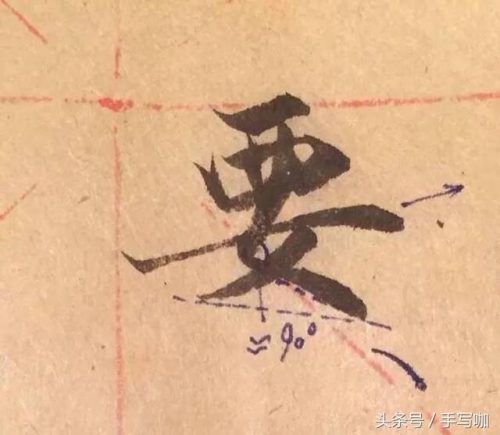 要
≈90°
头条号 / 手写咖